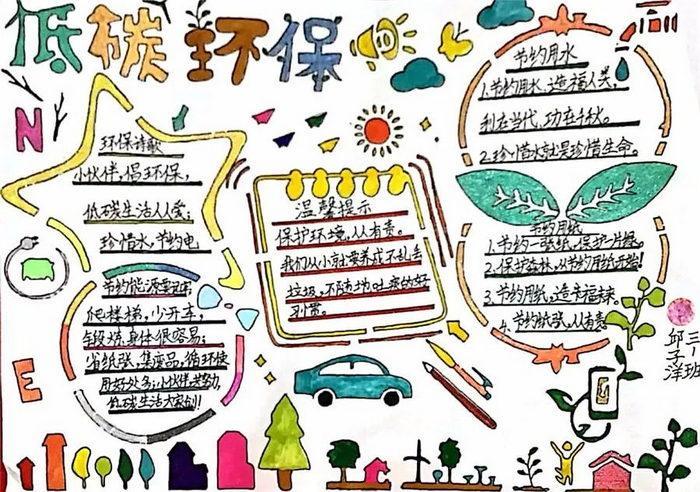 低碳环保
N
环保诗歌
小伙伴,倡环保,
低碳生活人人爱;
珍惜水,节约电
节约能源要记牢;
爬楼梯,少开车,
锻炼身体很容易;
省纸张,集废品,循环使
用好处多;小伙伴,齐努力,
低碳生活大家创!
E
温馨提示
保护环境,人人有责。
我们从小就要养成不乱丢
垃圾,不随地吐痰的好
习惯。
节约用水
1.节约用水,造福人类,
利在当代,功在千秋。
2.珍惜水就是珍惜生命。
节约用纸
1.节约一张纸,保护一片绿。
2.保护森林,从节约用纸开始!
3.节约用纸,造幸福
4.节约纸张,人人有责
三班
邱子洋